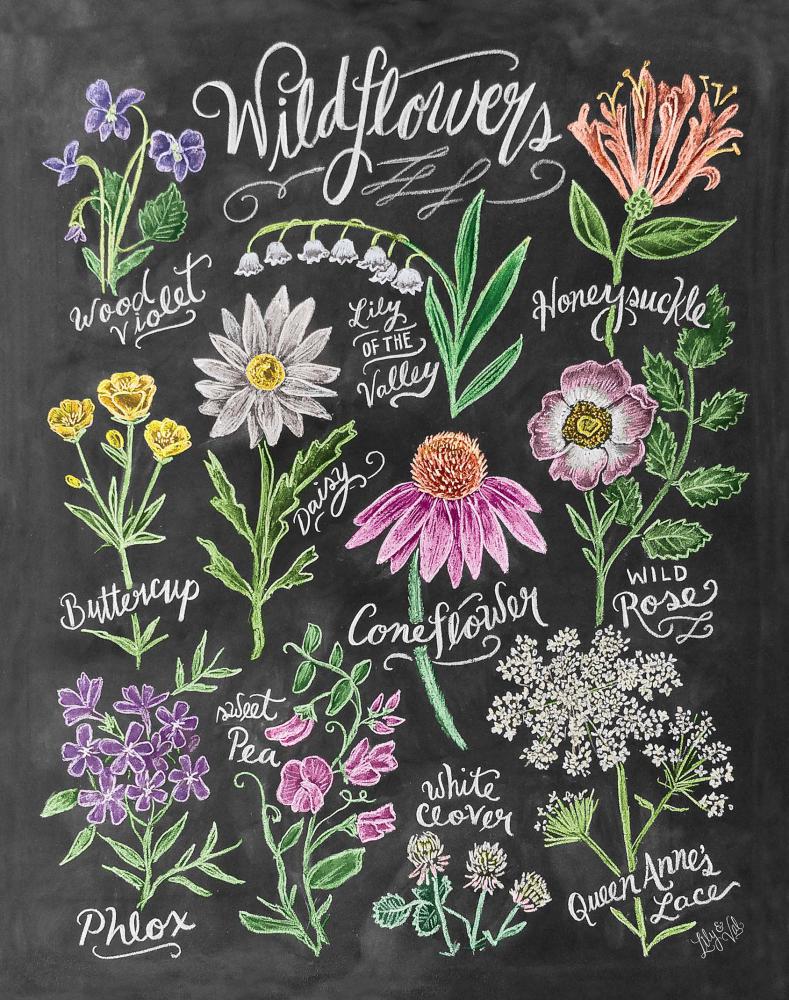 Wildflowers
Wood
Violet
Lily
OF THE
Valley
Honeysuckle
Buttercup
Daisy
Coneflower
WILD
Rose
Phlox
Sweet
Pea
White
Clover
Queen Anne's
Lace
Lily &
Val